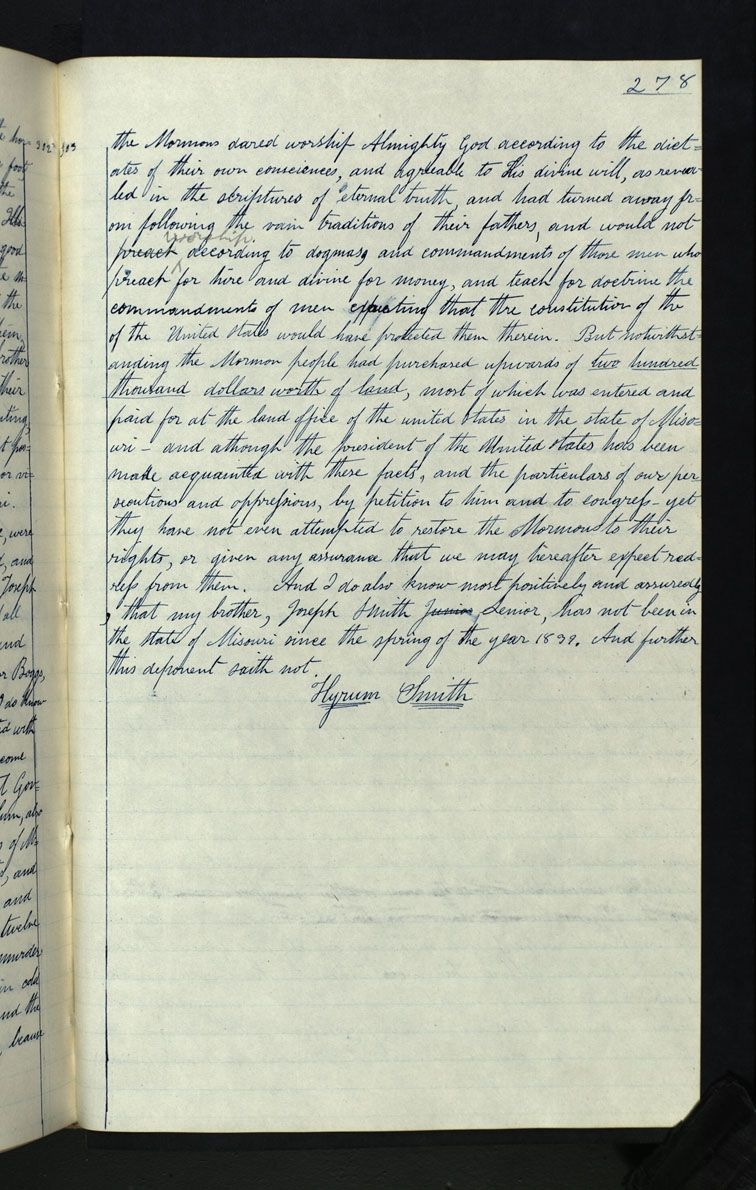 278
the Mormons dared worship Almighty God according to the dict=
ates of their own consciences, and agreable to His divine will, as revea-
led in the scriptures of eternal truth, and had turned away fr=
om following the vain traditions of their fathers, and would not
worship
preach according to dogmas, and commandments of those men who
preach for hire and divine for money, and teach for doctrine the
commandments of men expecting that the constitution of the
of the United states would have protected them therein. But notwithst-
anding the Mormon people had purchased upwards of two hundred
thousand dollars worth of land, most of which was entered and
paid for at the land office of the united states in the state of Miso=
uri - and athough the president of the United states has been
made acquainted with these facts, and the particulars of our per
secutions and oppressions, by petition to him and to congress - yet
they have not even attempted to restore the Mormons to their
rights, or given any assurance that we may hereafter expect red=
ress from them. And I do also know most positively and assuredly
, that my brother, Joseph Smith Junior, Senior, has not been in
the state of Misouri since the spring of the year 1839. And further
this deponent saith not.
Hyrum Smith
302
303
foot
the
good
the
rother
their
were
and
Joseph
all
and
r Boggs,
I do know
d with
come
t Gov-
him, also
of Mi-
, and
and
twelve
murder
in cold
and the
, because